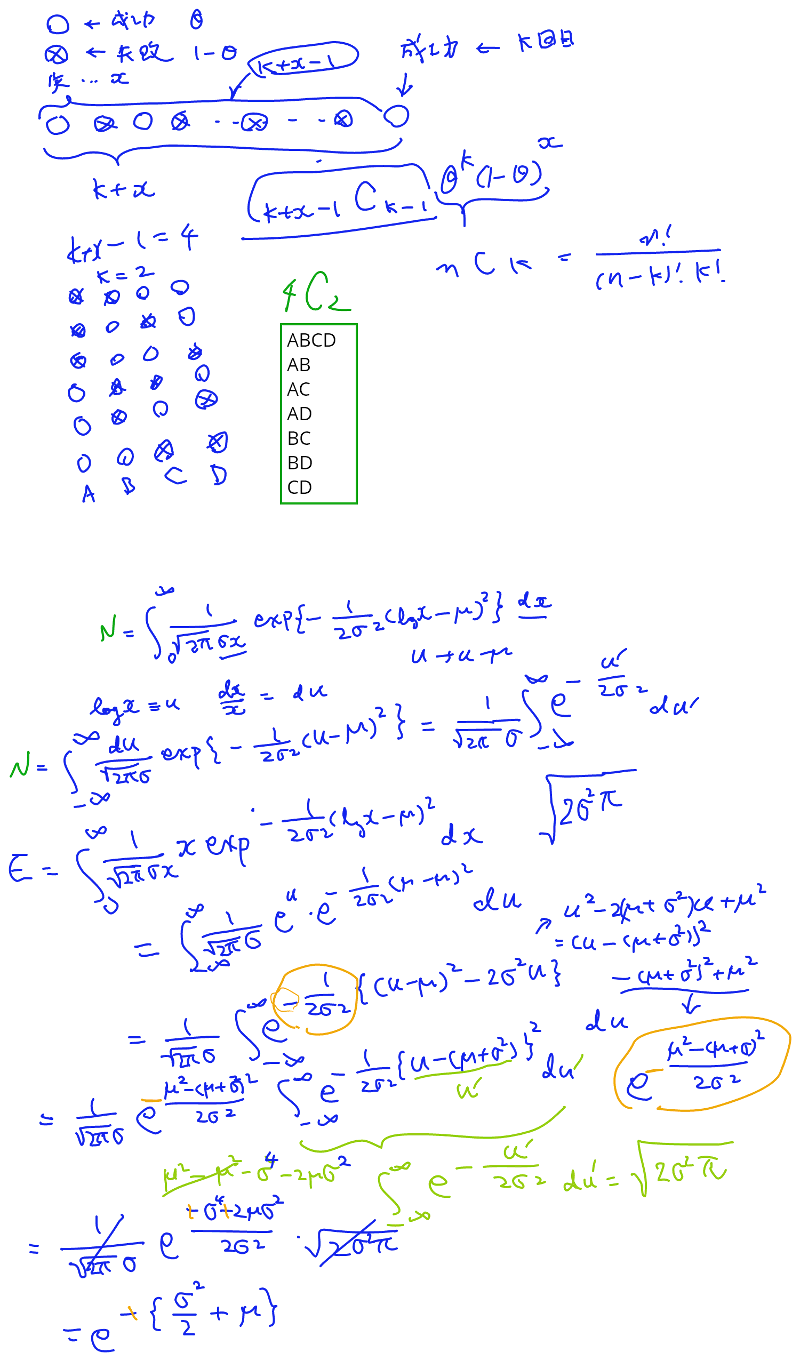 ○ ← 成功 θ
⊗ ← 失敗 1-θ
k+x-1
成功 ← k回目
... x
○ ⊗ ○ ⊗ ‥ ⊗ - ‥ ⊗ ○
k+x
k+x-1 C k-1 θ^k (1-θ)^x
k+x-1=4
k=2
nCk = n! / (n-k)! k!
⊗ ⊗ ○ ○
⊗ ○ ⊗ ○
⊗ ○ ○ ⊗
○ ⊗ ⊗ ○
○ ⊗ ○ ⊗
○ ○ ⊗ ⊗
A B C D
4C2
ABCD
AB
AC
AD
BC
BD
CD
N = ∫_0^∞ 1/(√2π σx) exp{-1/2σ² (log x-μ)²} dx
u→u-μ
log x = u dx/x = du
N = ∫_-∞^∞ du/(√2π σ) exp{-1/2σ² (u-μ)²} = 1/(√2π σ) ∫_-∞^∞ e^(-u'/2σ²) du'
√2σ²π
E = ∫_0^∞ 1/(√2π σx) x exp^(-1/2σ² (log x-μ)²) dx
= ∫_-∞^∞ 1/(√2π σ) e^u · e^(-1/2σ² (μ-μ)²) du
↗ u²-2(μ+σ²)u+μ²
= (u-(μ+σ²))²
-(μ+σ²)²+μ²
= 1/(√2π σ) ∫_-∞^∞ e^(-1/2σ² {(u-μ)²-2σ²u}) du
e^(-(μ²-(μ+σ)²)/2σ²)
= 1/(√2π σ) e^(-(μ²-(μ+σ²)²)/2σ²) ∫_-∞^∞ e^(-1/2σ² {u-(μ+σ²)}²) du'
u'
μ²-μ²-σ⁴-2μσ² ∫_-∞^∞ e^(-u'/2σ²) du' = √2σ²π
= 1/(√2π σ) e^((+σ⁴+2μσ²)/2σ²) · √2σ²π
= e^(+{σ²/2+μ})